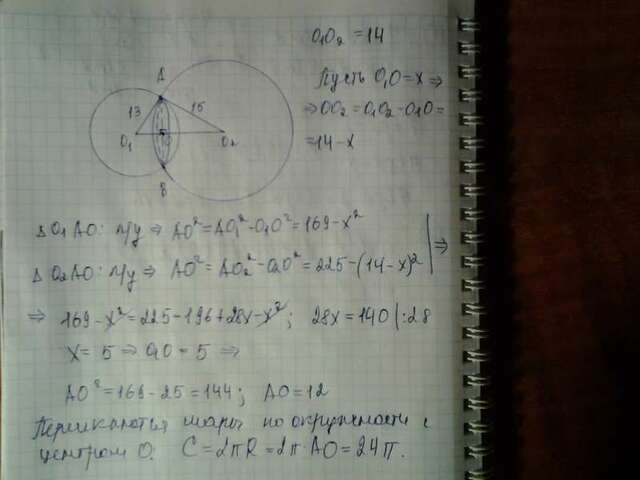 O₁O₂ = 14
Пусть O₁O = x ⇒
⇒ OO₂ = O₁O₂ - O₁O =
= 14 - x
A
13
15
O₁
O₂
B
Δ O₁AO: п/у ⇒ AO² = AO₁² - O₁O² = 169 - x²
Δ O₂AO: п/у ⇒ AO² = AO₂² - O₂O² = 225 - (14 - x)² | ⇒
⇒ 169 - x² = 225 - 196 + 28x - x²; 28x = 140 | : 28
x = 5 ⇒ O₁O = 5 ⇒
AO² = 169 - 25 = 144; AO = 12
шары по окружности с
центром O. C = 2πR = 2π · AO = 24π.